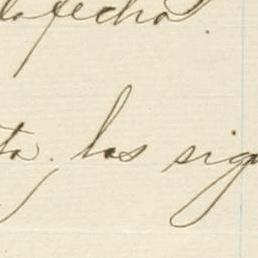 la fecha.
ta. los sig